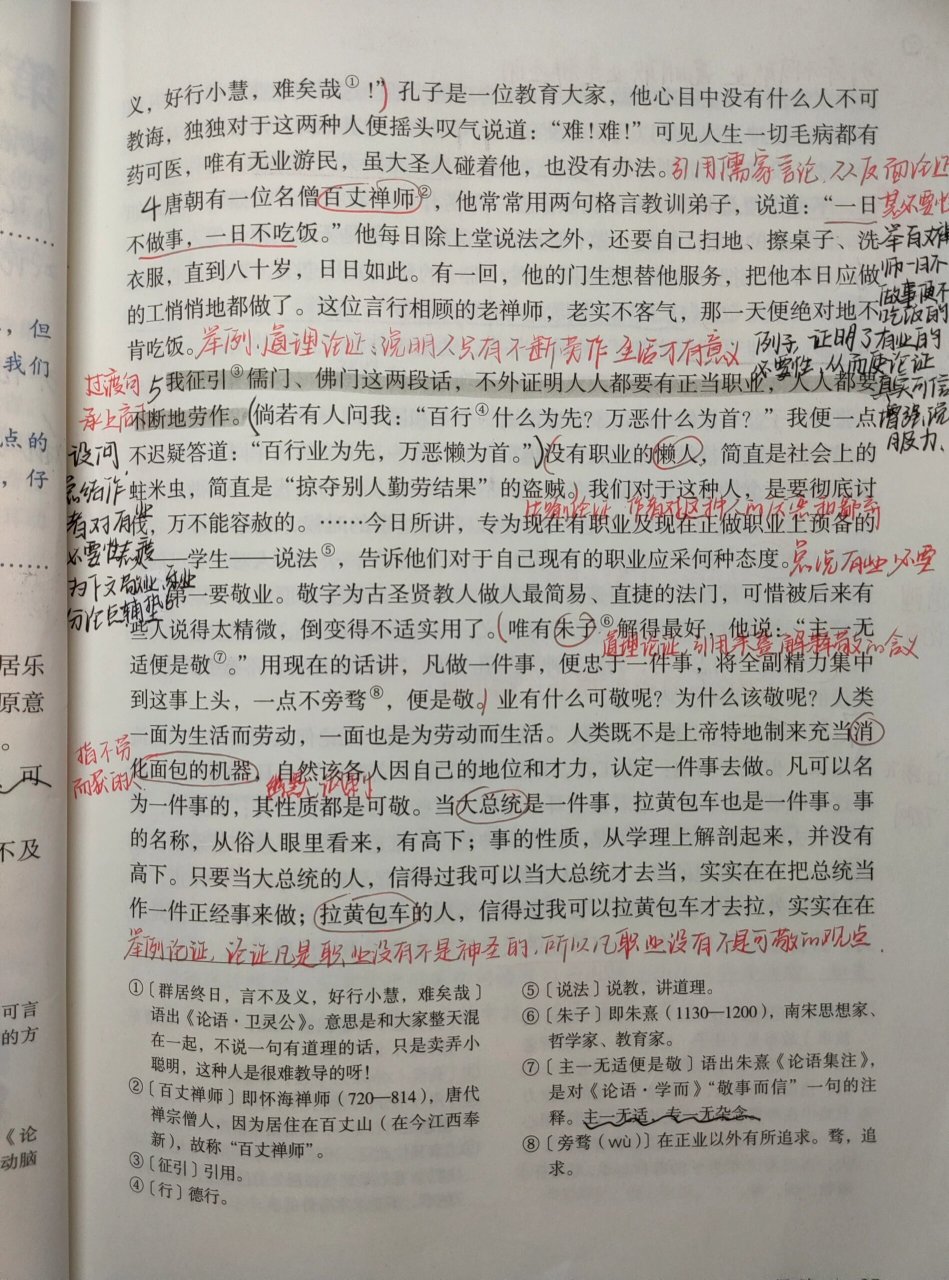 义，好行小慧，难矣哉①！”孔子是一位教育大家，他心目中没有什么人不可
教诲，独独对于这两种人便摇头叹气说道：“难！难！”可见人生一切毛病都有
药可医，唯有无业游民，虽大圣人碰着他，也没有办法。
引用儒家言论，从反面论证
其必要性
4 唐朝有一位名僧百丈禅师②，他常常用两句格言教训弟子，说道：“一日
不做事，一日不吃饭。”他每日除上堂说法之外，还要自己扫地、擦桌子、洗
衣服，直到八十岁，日日如此。有一回，他的门生想替他服务，把他本日应做
的工悄悄地都做了。这位言行相顾的老禅师，老实不客气，那一天便绝对地不
肯吃饭。
举例，道理论证：说明人只有不断劳作 生活才有意义
举百丈禅
师一日不
做事便不
吃饭的
例子，证明了有业的
必要性，从而使论证
真实可信
增强说
服力、
过渡句
承上启下
5 我征引③儒门、佛门这两段话，不外证明人人都要有正当职业，人人都要
不断地劳作。倘若有人问我：“百行④什么为先？万恶什么为首？”我便一点
不迟疑答道：“百行业为先，万恶懒为首。”没有职业的懒人，简直是社会上的
蛀米虫，简直是“掠夺别人勤劳结果”的盗贼。我们对于这种人，是要彻底讨
伐，万不能容赦的。……今日所讲，专为现在有职业及现在正做职业上预备的
人——学生——说法⑤，告诉他们对于自己现有的职业应采何种态度。
设问，
总结作
者对有业
必要性态度
为下文敬业、乐业
分论点铺垫
总说有业必要
第一要敬业。敬字为古圣贤教人做人最简易、直捷的法门，可惜被后来有
些人说得太精微，倒变得不适实用了。唯有朱子⑥解得最好，他说：“主一无
适便是敬⑦。”用现在的话讲，凡做一件事，便忠于一件事，将全副精力集中
到这事上头，一点不旁骛⑧，便是敬。业有什么可敬呢？为什么该敬呢？人类
一面为生活而劳动，一面也是为劳动而生活。人类既不是上帝特地制来充当消
化面包的机器，自然该各人因自己的地位和才力，认定一件事去做。凡可以名
为一件事的，其性质都是可敬。当大总统是一件事，拉黄包车也是一件事。事
的名称，从俗人眼里看来，有高下；事的性质，从学理上解剖起来，并没有
高下。只要当大总统的人，信得过我可以当大总统才去当，实实在在把总统当
作一件正经事来做；拉黄包车的人，信得过我可以拉黄包车才去拉，实实在在
道理论证，引用朱熹解释敬的含义
指不劳
而获的人
幽默 讽刺
举例论证，论证凡是职业没有不是神圣的，所以凡职业没有不是可敬的观点
①〔群居终日，言不及义，好行小慧，难矣哉〕
语出《论语·卫灵公》。意思是和大家整天混
在一起，不说一句有道理的话，只是卖弄小
聪明，这种人是很难教导的呀！
②〔百丈禅师〕即怀海禅师（720—814），唐代
禅宗僧人，因为居住在百丈山（在今江西奉
新），故称“百丈禅师”。
③〔征引〕引用。
④〔行〕德行。
⑤〔说法〕说教，讲道理。
⑥〔朱子〕即朱熹（1130—1200），南宋思想家、
哲学家、教育家。
⑦〔主一无适便是敬〕语出朱熹《论语集注》，
是对《论语·学而》“敬事而信”一句的注
释。主一无适，专一无杂念。
⑧〔旁骛（wù）〕在正业以外有所追求。骛，追
求。
，但
我们
点的
，仔
居乐
原意
。
可
不及
可言
的方
《论
动脑